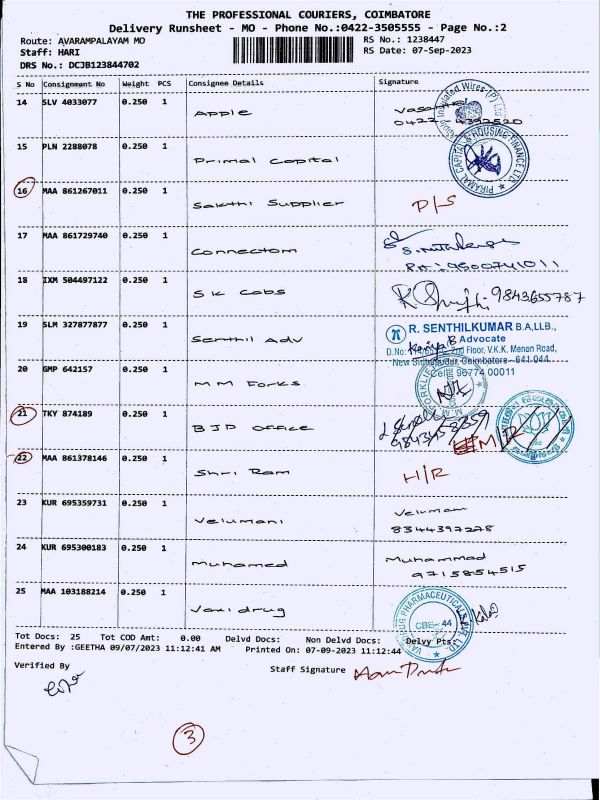 THE PROFESSIONAL COURIERS, COIMBATORE
Delivery Runsheet - MO - Phone No.:0422-3505555 - Page No.:2
Route: AVARAMPALAYAM MO
RS No.: 1238447
Staff: HARI
RS Date: 07-Sep-2023
DRS No.: DCJB123844702
S No Consignment No Weight PCS Consignee Details Signature
14 SLV 4033077 0.250 1 Apple
15 PLN 2288078 0.250 1 Primal Capital
PIRAMAL CAPITAL & HOUSING FINANCE LTD
16 MAA 861267011 0.250 1 Sakthi Supplier P/S
17 MAA 861729740 0.250 1 Connectom
PH: 9500741011
18 IXM 504497122 0.250 1 SK Cabs 9843655787
19 SLM 327877877 0.250 1 Senthil Adv
R. SENTHILKUMAR B.A,LL.B.,
Advocate
2nd Floor, V.K.K. Menon Road,
New Siddhapudur, Coimbatore - 641 044.
Cell: 96774 00011
20 GMP 642157 0.250 1 MM Forks
21 TKY 874189 0.250 1 BJP office
22 MAA 861378146 0.250 1 Shri Ram H/R
23 KUR 695359731 0.250 1 Velumani Velumani
8344397278
24 KUR 695300183 0.250 1 Muhamed Muhammad
9715854515
25 MAA 103188214 0.250 1 Vani drug
CBE - 44
Tot Docs: 25 Tot COD Amt: 0.00 Delvd Docs: Non Delvd Docs: Delvy Pts:
Entered By :GEETHA 09/07/2023 11:12:41 AM Printed On: 07-09-2023 11:12:44
Verified By Staff Signature
3